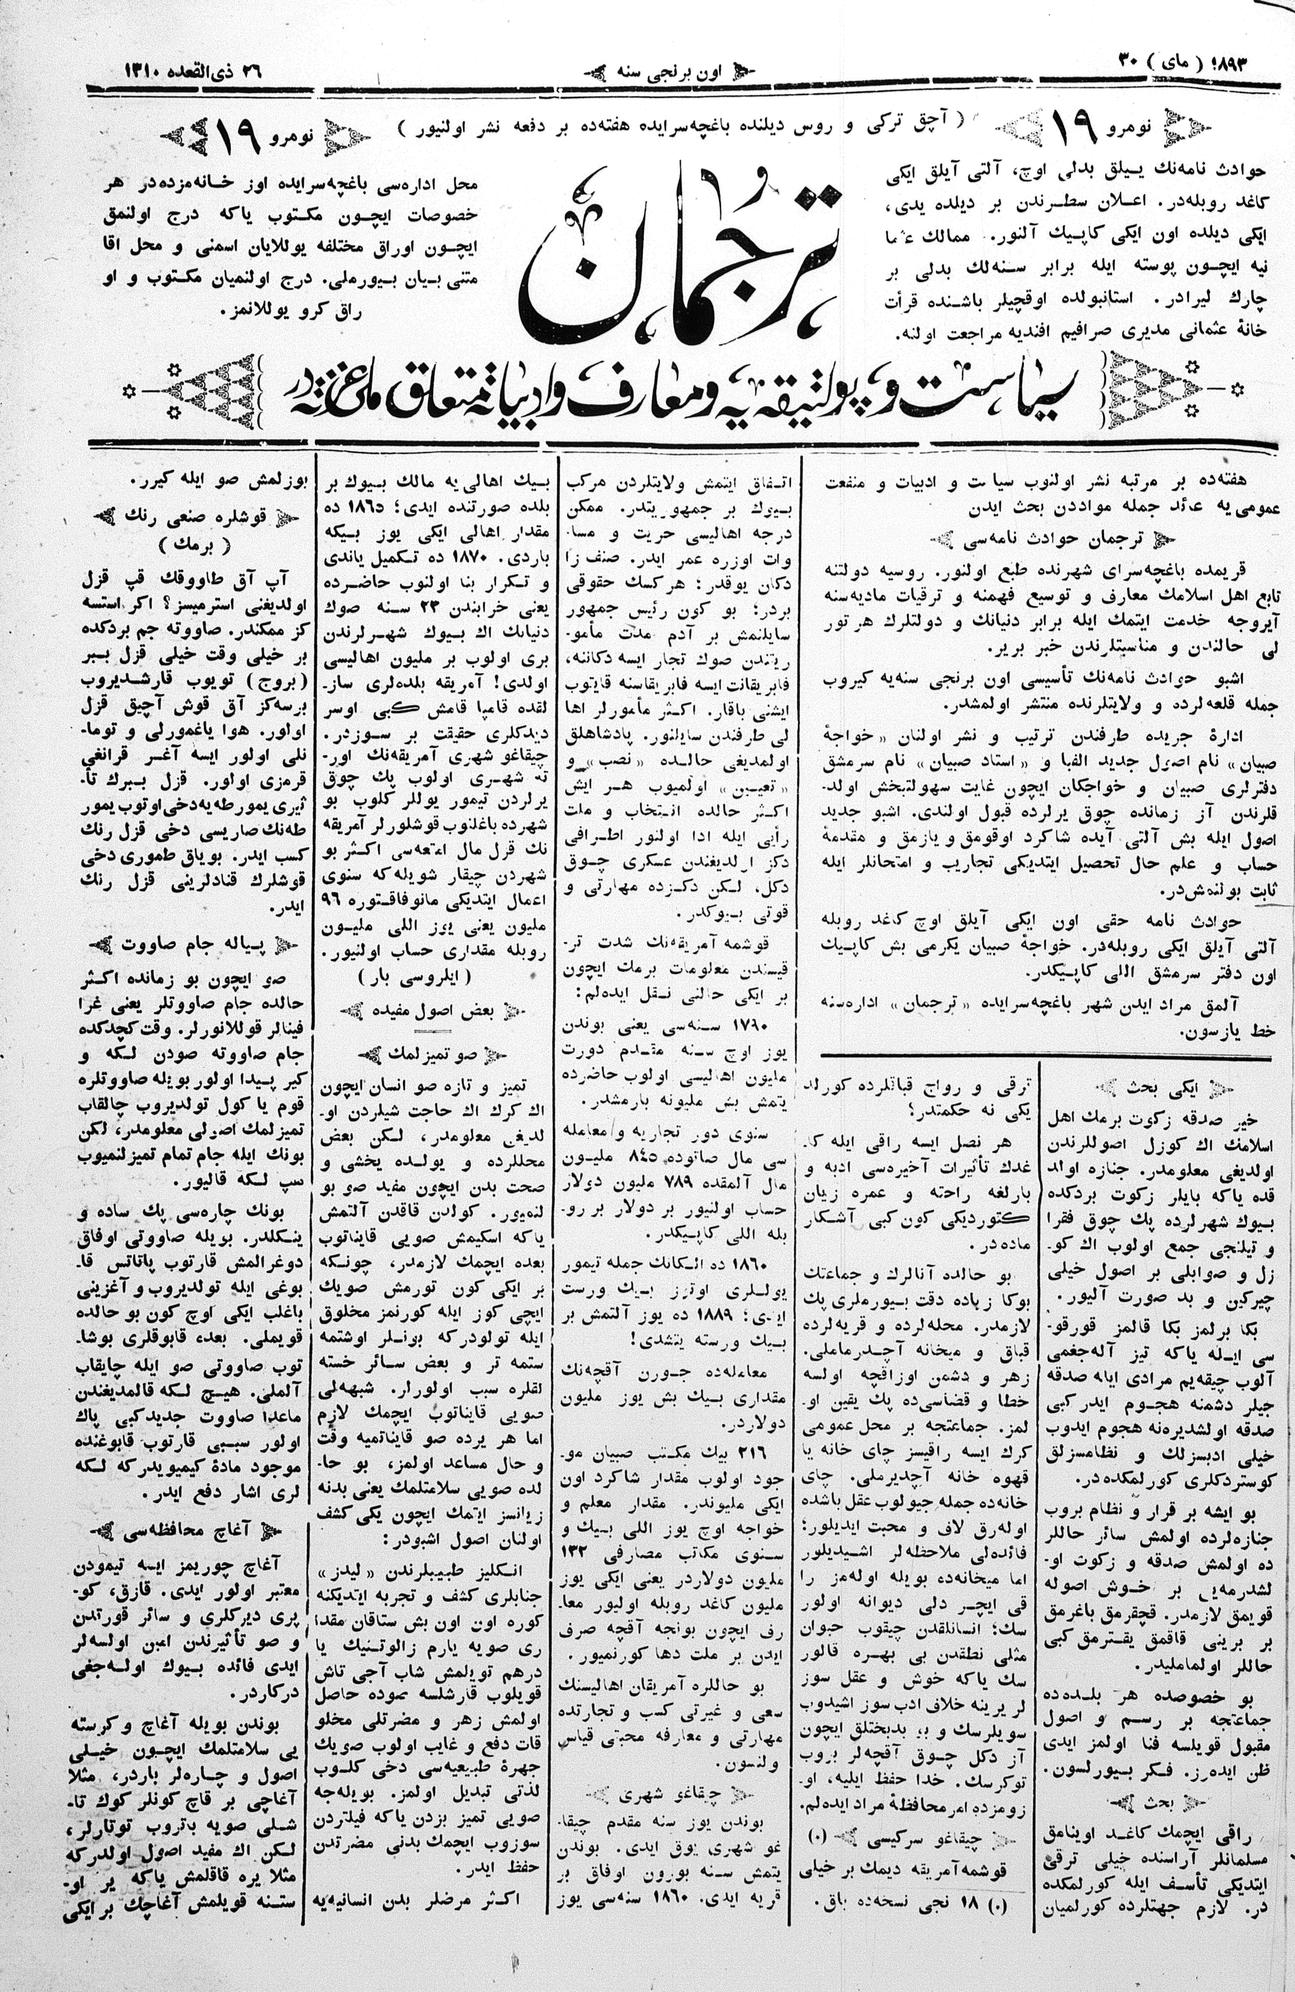 ١٨٩٣ ( مای ) ٣٠
اون برنجی سنه
٢٦ ذی القعده ١٣١٠
نومرو ١٩
( آچق ترکی و روس دیلنده باغچه سرایده هفته‌ده بر دفعه نشر اولنیور )
نومرو ١٩
حوادث نامه‌نك ییلق بدلی اوچ، آلتی آیلق ایکی
کاغد روبله‌در. اعلان سطرندن بر دیلده یدی،
ایکی دیلده اون ایکی کاپیك آلنور. ممالك عثما
نیه ایچون پوسته ایله برابر سنه‌لك بدلی بر
چارك لیرادر. استانبولده اوقچیلر باشنده قرأت
خانهٔ عثمانی مدیری صرافیم افندیه مراجعت اولنه.
ترجمان
محل اداره‌سی باغچه سرایده اوز خانه‌مزده‌در هر
خصوصات ایچون مکتوب یاکه درج اولنمق
ایچون اوراق مختلفه یوللایان اسمنی و محل اقا
متنی بیان بیورملی. درج اولنمیان مکتوب و او
راق کرو یوللانمز.
سیاست و پولتیقه‌یه و معارف و ادبیاته متعلق ملی غزته‌در
هفته‌ده بر مرتبه نشر اولنوب سیاست و ادبیات و منفعت
عمومی‌یه عائد جمله مواددن بحث ایدن
ترجمان حوادث نامه‌سی
قریمده باغچه‌سرای شهرنده طبع اولنور. روسیه دولتنه
تابع اهل اسلامك معارف و توسیع فهمنه و ترقیات مادیه‌سنه
آیروجه خدمت ایتمك ایله برابر دنیانك و دولتلرك هر تور
لی حالندن و مناسبتلرندن خبر بریر.
اشبو حوادث نامه‌نك تأسیسی اون برنجی سنه‌یه کیروب
جمله قلعه‌لرده و ولایتلرنده منتشر اولمشدر.
ادارهٔ جریده طرفندن ترتیب و نشر اولنان «خواجهٔ
صبیان» نام اصول جدید الفبا و «استاد صبیان» نام سرمشق
دفترلری صبیان و خواجکان ایچون غایت سهولتبخش اولد-
قلرندن آز زمانده چوق یرلرده قبول اولندی. اشبو جدید
اصول ایله بش آلتی آیده شاکرد اوقومق و یازمق و مقدمهٔ
حساب و علم حال تحصیل ایتدیکی تجاریب و امتحانلر ایله
ثابت بولنمش‌در.
حوادث نامه حقی اون ایکی آیلق اوچ کاغد روبله
آلتی آیلق ایکی روبله‌در. خواجهٔ صبیان یکرمی بش کاپیك
اون دفتر سرمشق اللی کاپیکدر.
آلمق مراد ایدن شهر باغچه سرایده «ترجمان» اداره‌سنه
خط یازسون.
ایکی بحث
خیر صدقه زکوت برمك اهل
اسلامك اك کوزل اصوللرندن
اولدیغی معلومدر. جنازه اولد
قده یاکه بایلر زکوت بردکده
بیوك شهرلرده پك چوق فقرا
و تیلنجی جمع اولوب اك کو-
زل و صوابلی بر اصول خیلی
چیرکین و بد صورت آلیور.
بکا برلمز بکا قالمز قورقو-
سی ایله یاکه تیز آله‌جغمی
آلوب چیقه‌یم مرادی ایله صدقه
جیلر دشمنه هجوم ایدر کبی
صدقه اولشدیرنه هجوم ایدوب
خیلی ادبسزلك و نظامسزلق
کوستردکلری کورلمکده‌در.
بو ایشه بر قرار و نظام بروب
جنازه‌لرده اولمش سائر حاللر
ده اولمش صدقه و زکوت او-
لشدرمه‌یی بر خوش اصوله
قویمق لازمدر. قچقرمق باغرمق
بر برینی قاقمق یقترمق کبی
حاللر اولماملیدر.
بو خصوصده هر بلده‌ده
جماعتجه بر رسم و اصول
مقبول قویلسه فنا اولمز ایدی
ظن ایده‌رز. فکر بیورلسون.
بحث
راقی ایچمك کاغد اوینامق
مسلمانلر آراسنده خیلی ترقی
ایتدیکی تأسف ایله کورلمکده
در. لازم جهتلرده کورلمیان
ترقی و رواج قباتلرده کورلد
یکی نه حکمتدر؟
هر نصل ایسه راقی ایله کا
غدك تأثیرات آخیره‌سی ادبه و
بارلغه راحته و عمره زیان
کتوردیکی کون کبی آشکار
ماده‌در.
بو حالده آنالرك و جماعتك
بوکا زیاده دقت بیورملری پك
لازمدر. محله‌لرده و قریه‌لرده
قباق و میخانه آچدرماملی.
زهر و دشمن اوزاقچه اولسه
خطا و قضاسی‌ده پك یقین او-
لمز. جماعتجه بر محل عمومی
کرك ایسه راقیسز چای خانه یا
قهوه خانه آچدیرملی. چای
خانه‌ده جمله جیولوب عقل باشده
اوله‌رق لاف و محبت ایدیلور؛
فائده‌لی ملاحظه‌لر اشیدیلور
اما میخانه‌ده بویله اوله‌مز را
قی ایچر دلی دیوانه اولور
سك؛ انسانلقدن چیقوب حیوان
مثلی نطقدن بی بهره قالور
سك یاکه خوش و عقل سوز
لر یرینه خلاف ادب سوز اشیدوب
سویلرسك و بو بدبختلق ایچون
آز دکل چوق آقچه‌لر بروب
توکرسك. خدا حفظ ایلیه، او-
زومزده امر محافظهٔ مراد ایده‌لم.
چیقاغو سرکیسی (٠)
قوشمه آمریقه دیمك بر خیلی
(٠) ١٨ نجی نسخه‌ده باق.
اتفاق ایتمش ولایتلردن مرکب
بیوك بر جمهوریتدر. ممکن
درجه اهالیسی حریت و مسا-
وات اوزره عمر ایدر. صنف زا
دکان یوقدر: هر کسك حقوقی
بردر؛ بو کون رئیس جمهور
سایلنمش بر آدم مدت مأمو-
ریتندن صوك تجار ایسه دکاننه،
فابریقانت ایسه فابریقاسنه قایتوب
ایشنی باقار. اکثر مأمورلر اها
لی طرفندن سایلنور. پادشاهلق
اولمدیغی حالده «نصب» و
«تعیین» اولمیوب هر ایش
اکثر حالده انتخاب و ملت
رأیی ایله ادا اولنور اطرافی
دکز اولدیغندن عسکری چوق
دکل، لکن دکزده مهارتی و
قوتی بیوکدر.
قوشمه آمریقه‌نك شدت تر-
قیسندن معلومات برمك ایچون
بر ایکی حالنی نقل ایده‌لم:
١٧٩٠ سنه‌سی یعنی بوندن
یوز اوچ سنه مقدم دورت
ملیون اهالیسی اولوب حاضرده
یتمش بش ملیونه بارمشدر.
سنوی دور تجاریه و معامله
سی مال صاتوده ٨٤٥ ملیون
مال آلمقده ٧٨٩ ملیون دولار
حساب اولنیور بر دولار بر رو-
بله اللی کاپیکدر.
١٨٦٠ ده الکانك جمله تیمور
یوللری اوتوز بیك ورست
ایدی؛ ١٨٨٩ ده یوز آلتمش بر
بیك ورسته یتشدی!
معامله‌ده جورن آقچه‌نك
مقداری بیك بش یوز ملیون
دولاردر.
٢١٦ بیك مکتب صبیان مو-
جود اولوب مقدار شاکرد اون
ایکی ملیوندر. مقدار معلم و
خواجه اوچ یوز اللی بیك و
سنوی مکاتب مصارفی ١٣٢
ملیون دولاردر یعنی ایکی یوز
ملیون کاغد روبله اولیور معا-
رف ایچون بونجه آقچه صرف
ایدن بر ملت دها کورنمیور.
بو حاللره آمریقان اهالیسنك
سعی و غیرتی کسب و تجارتده
مهارتی و معارفه محبتی قیاس
ولنسون.
چیقاغو شهری
بوندن یوز سنه مقدم چیقا-
غو شهری یوق ایدی. بوندن
یتمش سنه بورون اوفاق بر
قریه ایدی. ١٨٦٠ سنه‌سی یوز
بیك اهالی‌یه مالك بیوك بر
بلده صورتنده ایدی؛ ١٨٦٥ ده
مقدار اهالی ایکی یوز بیکه
باردی. ١٨٧٠ ده تکمیل یاندی
و تکرار بنا اولنوب حاضرده
یعنی خرابندن ٢٣ سنه صوك
دنیانك اك بیوك شهرلرندن
بری اولوب بر ملیون اهالیسی
اولدی! آمریقه بلده‌لری ساز-
لقده قامیا قامش کبی اوسر
دیدکلری حقیقت بر سوزدر.
چیقاغو شهری آمریقه‌نك اور-
ته شهری اولوب پك چوق
یرلردن تیمور یوللر کلوب بو
شهرده باغلنوب قوشلورلر آمریقه
نك قرل مال امتعه‌سی اکثر بو
شهردن چیقار شویله‌که سنوی
اعمال ایتدیکی مانوفاقتوره ٩٦
ملیون یعنی یوز اللی ملیون
روبله مقداری حساب اولنیور.
( ایلروسی بار )
بعض اصول مفیده
صو تمیزلمك
تمیز و تازه صو انسان ایچون
اك کرك اك حاجت شیلردن او-
لدیغی معلومدر، لکن بعض
محللرده و یولده یخشی و
صحت بدن ایچون مفید صو بو
لنمیور. کولدن قاقدن آلتمش
یاکه اسکیمش صویی قایناتوب
بعده ایچمك لازمدر، چونکه
بر ایکی کون تورمش صویك
ایچی کوز ایله کورنمز مخلوق
ایله تولودر که بونلر اوشتمه
ستمه تر و بعض سائر خسته
لقلره سبب اولورلر. شبهه‌لی
صویی قایناتوب ایچمك لازم
اما هر یرده صو قایناتمیه وقت
و حال مساعد اولمز، بو حا-
لده صویی سلامتلمك یعنی بدنه
زیانسز ایتمك ایچون یکی کشف
اولنان اصول اشبودر:
انکلیز طبیبلرندن «لیدز»
جنابلری کشف و تجربه ایتدیکنه
کوره اون اون بش ستاقان مقدا
ری صویه یارم زالوتنیك یا
درهم تویلمش شاب آجی تاش
قویلوب قارشلسه صوده حاصل
اولمش زهر و مضرتلی مخلو
قات دفع و غایب اولوب صویك
چهرهٔ طبیعیه‌سی دخی کلوب
لذتی تبدیل اولمز. بویله‌جه
صویی تمیز بزدن یاکه فیلتردن
سوزوب ایچمك بدنی مضرتدن
حفظ ایدر.
اکثر مرضلر بدن انسانیه‌یه
بوزلمش صو ایله کیرر.
قوشلره صنعی رنك
( برمك )
آپ آق طاووقك قپ قزل
اولدیغنی استرمیسز؟ اکر استسه
کز ممکندر. صاووته جم بردکده
بر خیلی وقت خیلی قزل ببر
(بروچ) تویوب قارشدیروب
برسه‌کز آق قوش آچیق قزل
اولور. هوا یاغمورلی و توما-
نلی اولور ایسه آغر قرانغی
قرمزی اولور. قزل ببرك تأ-
ثیری یمورطه‌یه دخی اوتوب یمور
طه‌نك صاریسی دخی قزل رنك
کسب ایدر. بویاق طموری دخی
قوشلرك قنادلرینی قزل رنك
ایدر.
پیاله جام صاووت
صو ایچون بو زمانده اکثر
حالده جام صاووتلر یعنی غرا
فینالر قوللانورلر. وقت کچدکده
جام صاووته صودن لکه و
کیر پیدا اولور بویله صاووتلره
قوم یا کول تولدیروب چالقاب
تمیزلمك اصولی معلومدر، لکن
بونك ایله جام تمام تمیزلنمیوب
سپ لکه قالیور.
بونك چاره‌سی پك ساده و
ینکلدر. بویله صاووتی اوفاق
دوغرالمش قارتوب پاتاتس قا-
بوغی ایله تولدیروب و آغزینی
باغلب ایکی اوچ کون بو حالده
قویملی. بعده قابوقلری بوشا-
توب صاووتی صو ایله چایقاب
آلملی. هیچ لکه قالمدیغندن
ماعدا صاووت جدید کبی پاك
اولور سببی قارتوب قابوغنده
موجود مادهٔ کیمیویدر که لکه
لری اشار دفع ایدر.
آغاچ محافظه‌سی
آغاچ چوریمز ایسه تیموردن
معتبر اولور ایدی. قازق، کو-
پری دیرکلری و سائر قورتدن
و صو تأثیرندن امین اولسه‌لر
ایدی فائده بیوك اوله‌جغی
درکاردر.
بوندن بویله آغاچ و کرسته
یی سلامتلمك ایچون خیلی
اصول و چاره‌لر باردر، مثلا
آغاچی بر قاچ کونلر کوك تا-
شلی صویه باتروب توتارلر،
لکن اك مفید اصول اولدر که
مثلا یره قاقلمش یاکه یر او-
ستنه قویلمش آغاچك بر ایکی